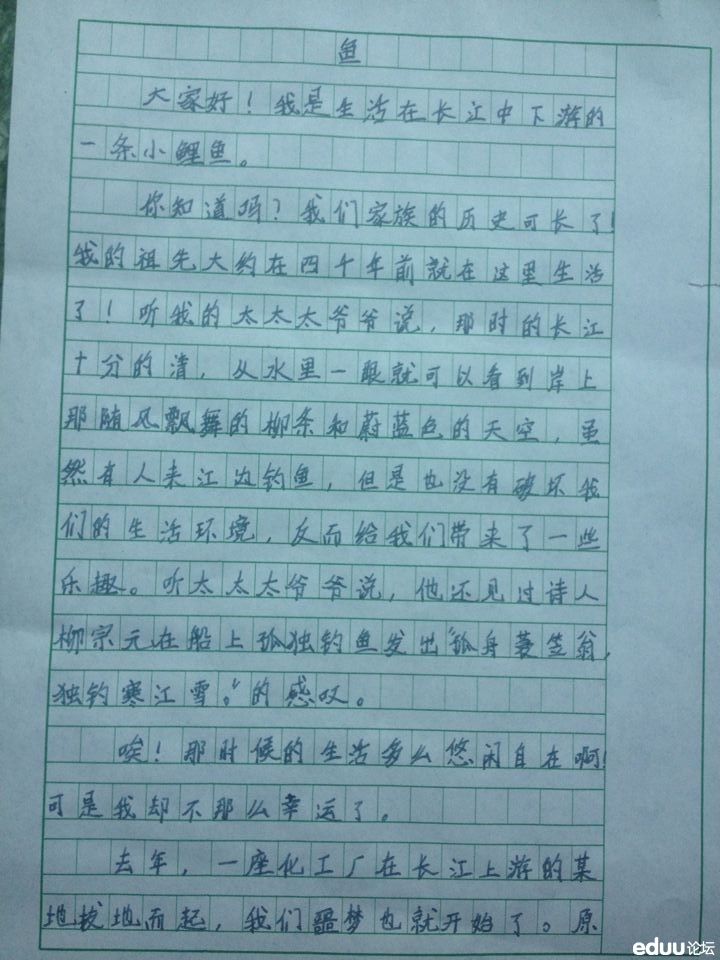 鱼
大家好！我是生活在长江中下游的
一条小鲤鱼。
你知道吗？我们家族的历史可长了！
我的祖先大约在四千年前就在这里生活
了！听我的太太太爷爷说，那时的长江
十分的清，从水里一眼就可以看到岸上
那随风飘舞的柳条和蔚蓝色的天空，虽
然有人来江边钓鱼，但是也没有破坏我
们的生活环境，反而给我们带来了一些
乐趣。听太太太爷爷说，他还见过诗人
柳宗元在船上孤独钓鱼发出“孤舟蓑笠翁，
独钓寒江雪。”的感叹。
唉！那时候的生活多么悠闲自在啊！
可是我却不那么幸运了。
去年，一座化工厂在长江上游的某
地拔地而起，我们噩梦也就开始了。原
eduu论坛